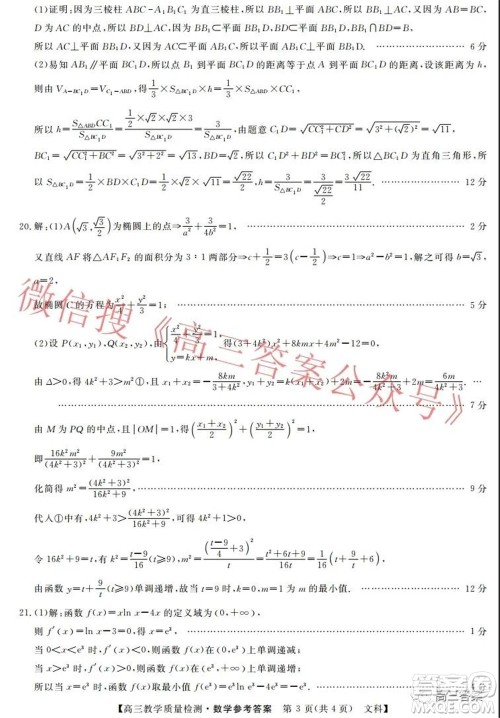 (1)证明:因为三棱柱 ABC-A₁B₁C₁ 为直三棱柱,所以 BB₁⊥平面 ABC,所以 BB₁⊥AC,又 AB=BC,
D 为 AC 的中点,所以 AC⊥BD,又 BB₁⊂平面 BB₁D,BD⊂平面 BB₁D,BB₁∩BD=B,
所以 AC⊥平面 BB₁D,又 AC⊂平面 ABC₁,所以平面 ABC₁⊥平面 BB₁D. 6 分
(2)易知 AB₁∥平面 BC₁D,所以点 B₁ 到平面 BC₁D 的距离等于点 A 到平面 BC₁D 的距离,设距离为 h,
则由 V_{A-BC₁D}=V_{C₁-ABD},得 1/3×S_{△BC₁D}×h=1/3×S_{△ABD}×CC₁,
所以 h=S_{△ABD}CC₁/S_{△BC₁D}=(1/2×√2×√2×3)/S_{△BC₁D}=3/S_{△BC₁D},由题意 C₁D=√(CC₁²+CD²)=√(3²+(√2)²)=√11,
BC₁=√(CC₁²+BC²)=√(3²+2²)=√13,所以 BD²+C₁D²=BC₁²,所以△BC₁D 为直角三角形,所
以 S_{△BC₁D}=1/2×BD×C₁D=1/2×√2×√11=√22/2,h=3/S_{△BC₁D}=3/(√22/2)=3√22/11. 12 分
20.解:(1)A(√3,√3/2)为椭圆上的点⇒3/a²+3/(4b²)=1, 2 分
又直线 AF 将△AF₁F₂ 的面积分为 3∶1 两部分⇒c-1=(1/4)·2c,
a=2,
故椭圆 C 的方程为 x²/4+y²/3=1. 5 分
(2)设 P(x₁,y₁),Q(x₂,y₂),由
得(3+4k²)x²+8kmx+4m²-12=0.
由 Δ>0,得 4k²+3>m²,且 x₁+x₂=-8km/(3+4k²),
由 M 为 PQ 的中点,且|OM|=1,得((x₁+x₂)/2)²+((y₁+y₂)/2)²=1,
即 16k²m²/(4k²+3)²+9m²/(4k²+3)²=1,
化简得 m²=(4k²+3)²/(16k²+9), 9 分
代入①中有:4k²+3>(4k²+3)²/(16k²+9),
令 16k²+9=t,有 k²=(t-9)/16(t≥9),
由函数 y=t+9/t(t≥9)单调递增,故当 t=9 时,为 m 的最小值. 12 分
21.(1)解:函数 f(x)=xln x-4x 的定义域为(0,+∞),
则 f′(x)=ln x-3,由 f′(x)=0,得 x=e³.
当 0<x<e³ 时,f′(x)<0,所以函数 f(x)在(0,e³)上单调递减;
当 x>e³ 时,f′(x)>0,所以函数 f(x)在(e³,+∞)上单调递增,
【高三教学质量检测·数学参考答案 第 3 页(共 4 页) 文科】
微信搜《高三答案公众号》
高三答案